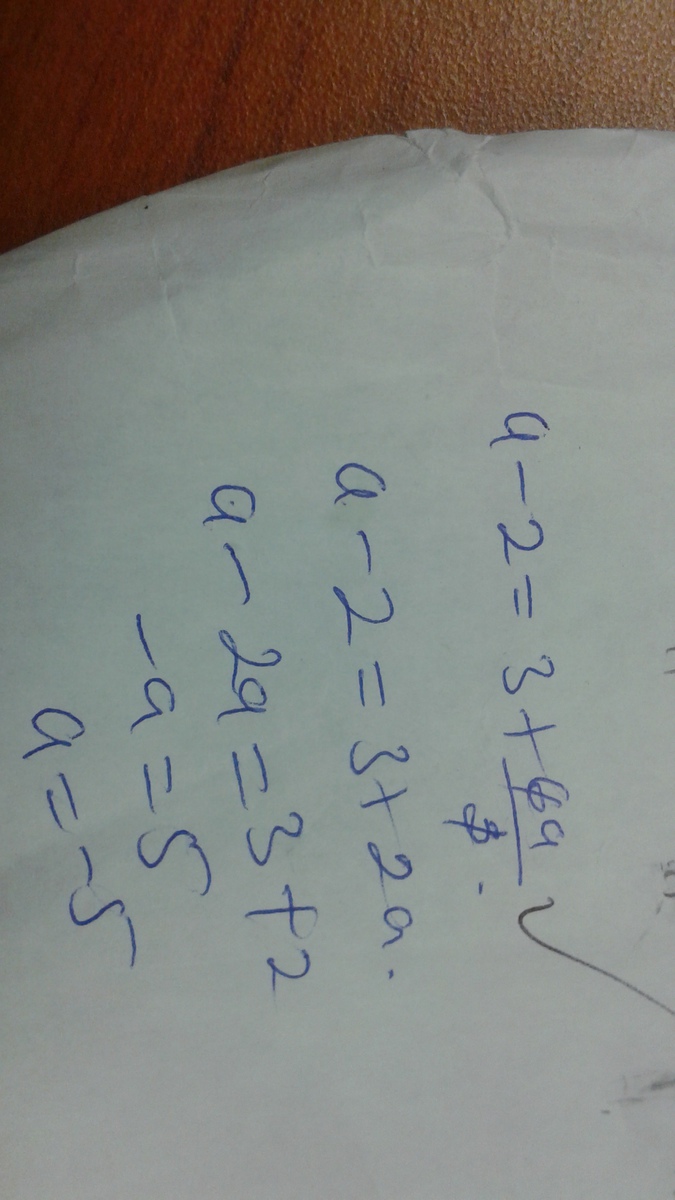 a - 2 = 3 + 6a/3.
a - 2 = 3 + 2a.
a - 2a = 3 + 2
-a = 5
a = -5